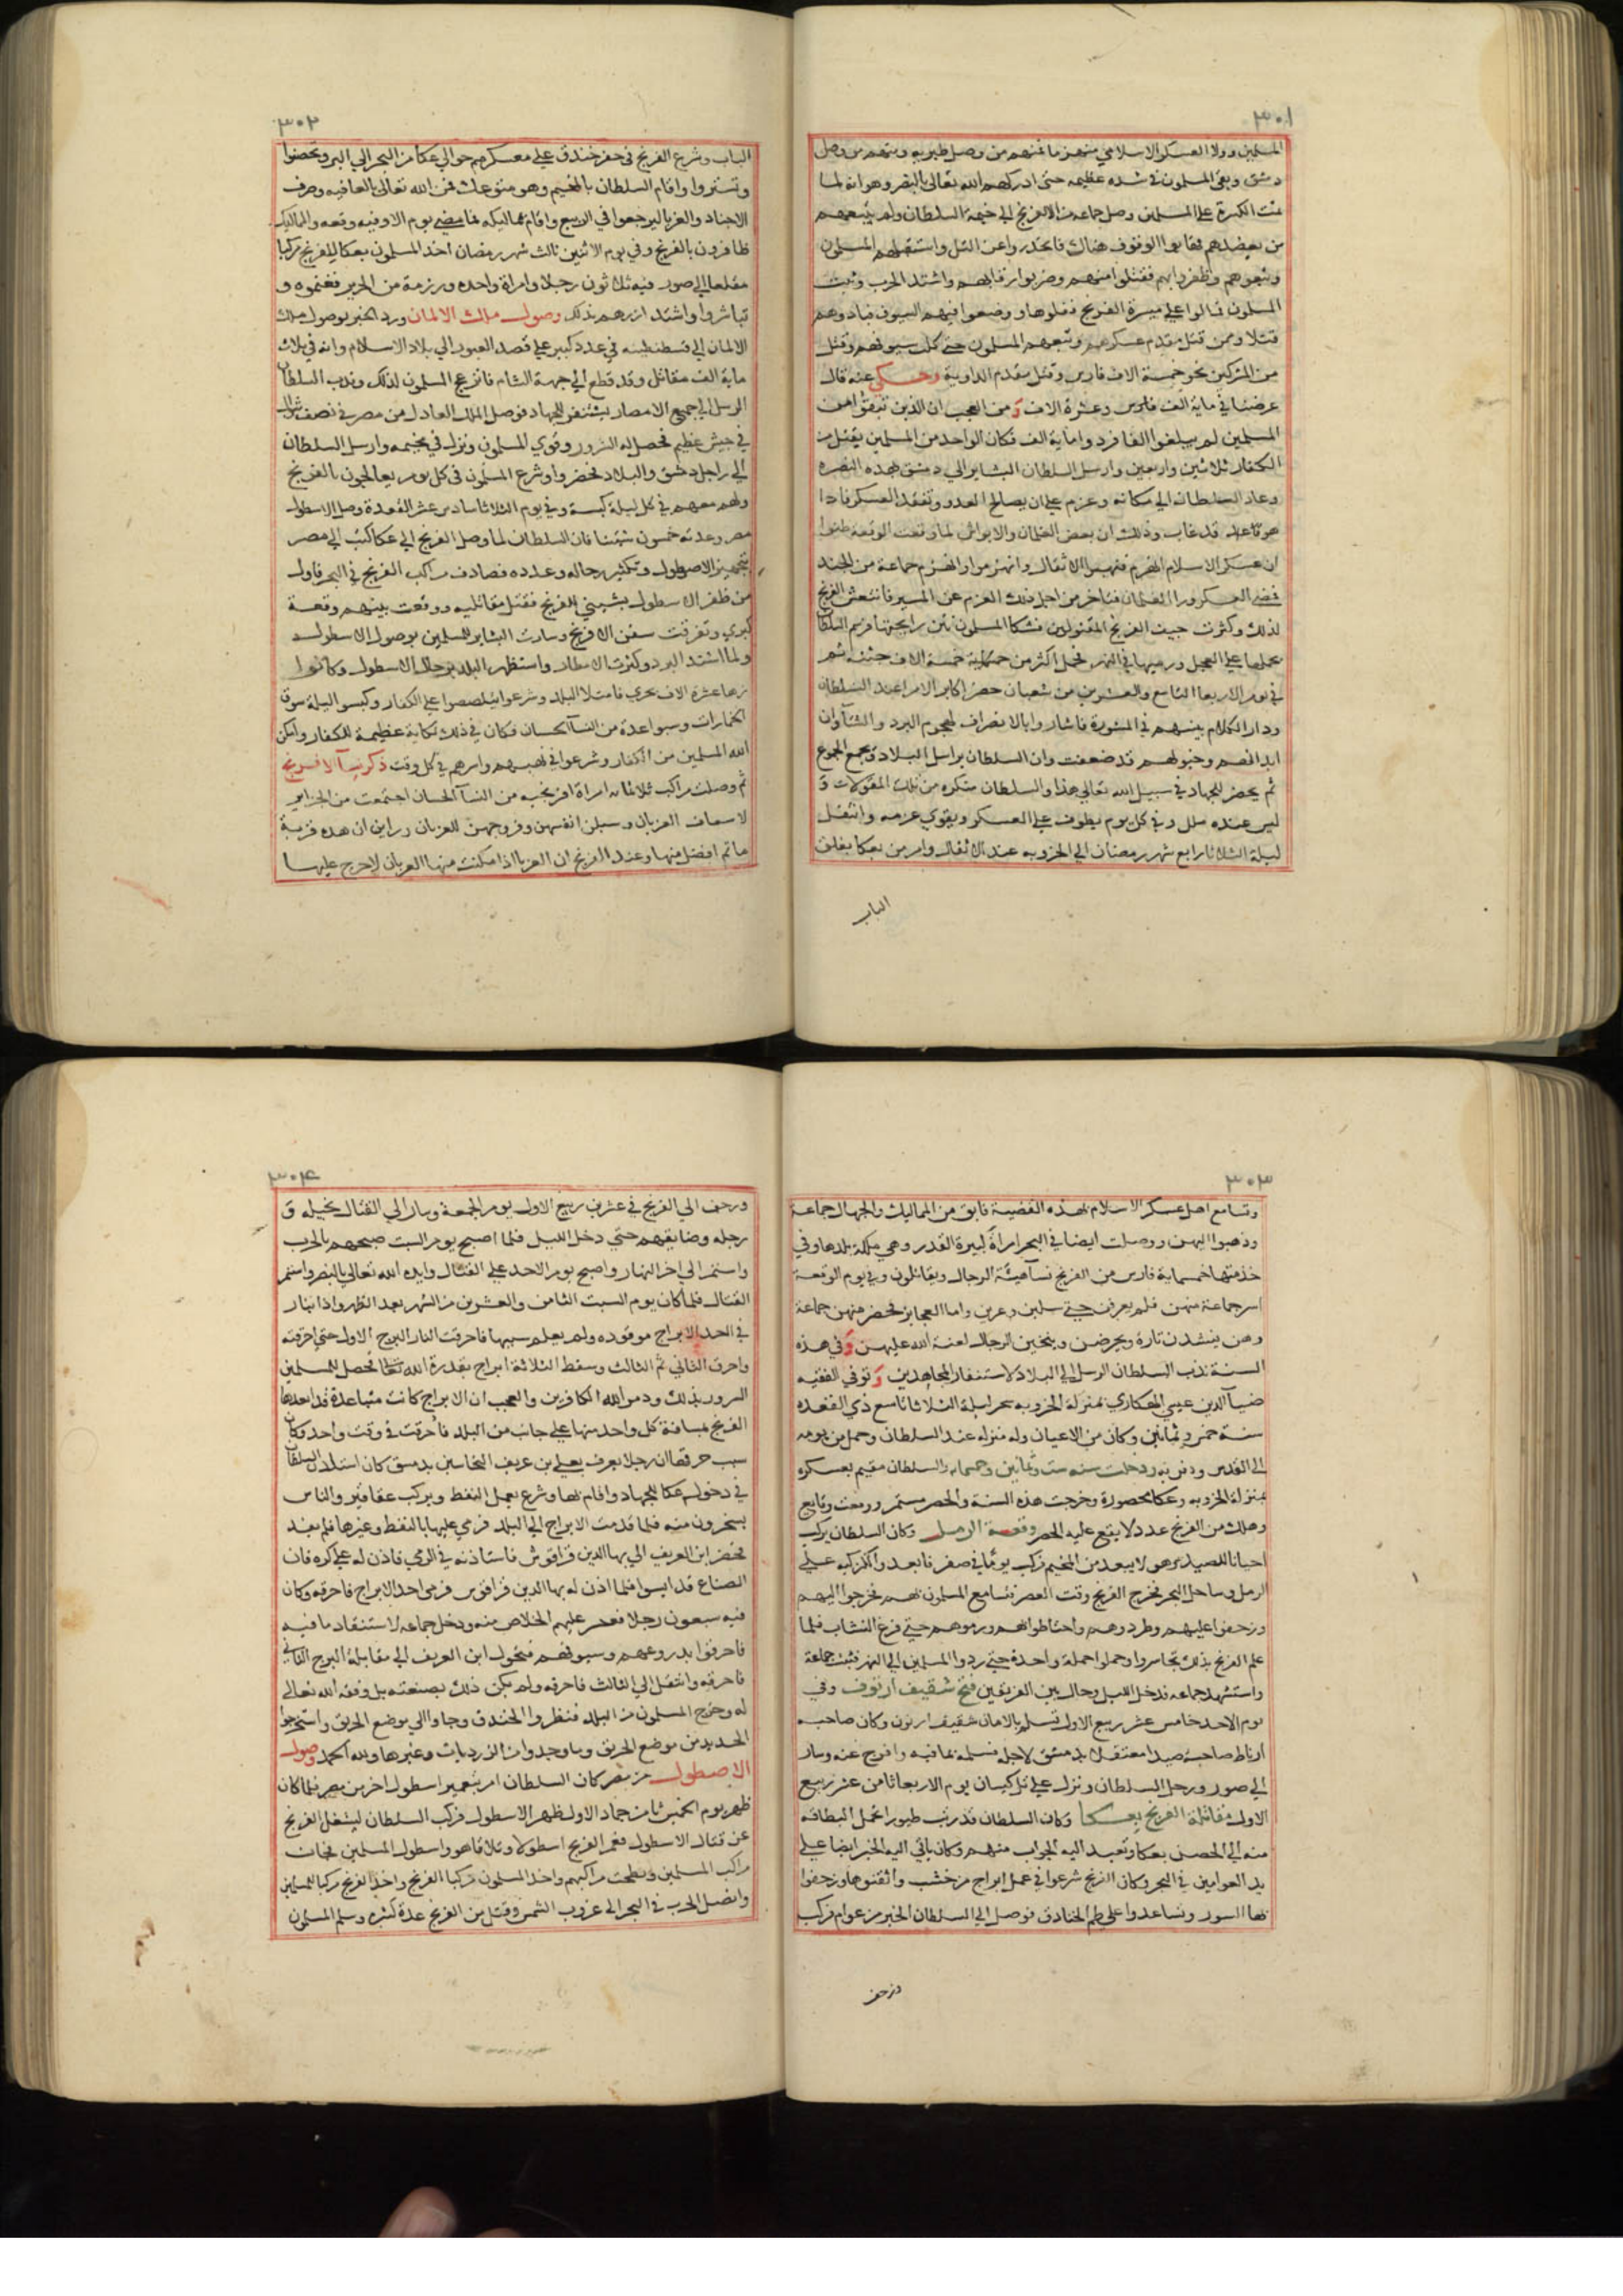 ٣٠١
المسلمين وولا العسكر الاسلامي منهزما فمنهم من وصل طبريه ومنهم من وصل
دمشق وبقي المسلمون في شده عظيمه حتى ادركهم الله تعالى بالنصر وهو انه لما
تمت الكسرة على المسلمين وصل جماعه من الافرنج الى خيمة السلطان ولم يتبعهم
من يعضدهم فهابوا الوقوف هناك فانحدروا عن التل واستقبلهم المسلمون
وتبعوهم وظفروا بهم فقتلوا منهم وضربوا رقابهم واشتد الحرب وثبت
المسلمون فمالوا على ميسرة الفرنج ففلوها ووضعوا فيهم السيوف فبادوهم
قتلا وممن قتل مقدم عسكرهم وتبعهم المسلمون حتى كلت سيوفهم وقتل
من المشركين نحو خمسة الاف فارس وقتل مقدم الداوية وحكي عنه قال
عرضنا في ماية الف فارس وعشرة الاف ومن العجب ان الذين ثبتوا من
المسلمين لم يبلغوا الفا فردوا ماية الف فكان الواحد من المسلمين يقتل من
الكفار ثلاثين واربعين وارسل السلطان البشاير الى دمشق بهذه النصره
وعاد السلطان الى مكانه وعزم على ان يصالح العدو وتفقد العسكر فاذا
هو قد غاب وذلك ان بعض الغلمان والاوباش لما وقعت الوقعه ظنوا
ان عسكر الاسلام انهزم فنهبوا الاثقال وانهزموا وانهزم جماعة من الجند
فمضى العسكر ورا الغلمان فتاخر من اجل ذلك العزم عن المسير فانتعش الفرنج
لذلك وكثرت جيف الفرنج المقتولين فشكا المسلمون نتن رايحتها فرسم السلطان
بحملها على العجل ورميها في النهر فحمل اكثر من خمسة الاف جثه ثم
في يوم الاربعا التاسع والعشرين من شعبان حضر اكابر الامرا عند السلطان
ودار الكلام بينهم في المشورة فاشاروا بالانصراف لهجوم البرد والشتا وان
ابدانهم وخيولهم قد ضعفت وان السلطان يراسل البلاد ويجمع الجموع
ثم يحضر للجهاد في سبيل الله تعالى هذا والسلطان متكره من تلك المقولات و
ليس عنده ملل وفي كل يوم يطوف على العسكر ويقوي عزمه وانتقل
ليلة الثلاثا رابع شهر رمضان الى الخروبه عند الاثقال وامر من بعكا بغلق
الباب
٣٠٢
الباب وشرع الفرنج في حفر خندق على معسكرهم حوالي عكا من البحر الى البر وتحصنوا
وتستروا واقام السلطان بالمخيم وهو متوعك فمن الله تعالى بالعافيه وصرف
الاجناد والعربا ليرجعوا في الربيع واقام بمماليكه فما مضى يوم الا وفيه وقعه والمماليك
ظافرون بالفرنج وفي يوم الاثنين ثالث شهر رمضان اخذ المسلمون بعكا للفرنج مركبا
مقلعا الى صور فيه ثلاثون رجلا وامراة واحده ورزمة من الحرير فغنموه و
تباشروا واشتد ازرهم بذلك وصول ملك الالمان ورد الخبر بوصول ملك
الالمان الى قسطنطينه في عدد كبير على قصد العبور الى بلاد الاسلام وانه في ثلاث
ماية الف مقاتل وقد قطع الى جهة الشام فانزعج المسلمون لذلك وندب السلطان
الرسل الى جميع الامصار يستنفر للجهاد فوصل الملك العادل من مصر في نصف شوال
في جيش عظيم فحصل له السرور وقوي المسلمون ونزل في مخيمه وارسل السلطان
الى راجل دمشق والبلاد فحضروا وشرع المسلمون في كل يوم يعالجون بالفرنج
ولهم معهم في كل ليلة كبسة وفي يوم الثلاثا سادس عشر القعدة وصل الاسطول
مصر وعدته خمسون شينيا فان السلطان لما وصل الفرنج الى عكا كتب الى مصر
بتجهيز الاصطول وتكثير رجاله وعدده فصادف مراكب الفرنج في البحر فاول
من ظفر الاسطول بشيني للفرنج فقتل مقاتليه ووقعت بينهم وقعة
كبرى وتفرقت سفن الافرنج وسارت البشاير للمسلمين بوصول الاسطول
ولما اشتد البرد وكثرت الامطار واستظهر البلد برجال الاسطول وكانوا
زها عشرة الاف بحري فامتلا البلد وشرعوا يتلصصوا على الكفار وكبسوا ليلة سوق
الخمارات وسبوا عدة من النسا الحسان فكان في ذلك نكاية عظيمة للكفار وامكن
الله المسلمين من الكفار وشرعوا في نهبهم واسرهم في كل وقت ذكر نسآ الافرنج
ثم وصلت مراكب ثلاثمائه امراة افرنجيه من النسآ الحسان اجتمعت من الجزاير
لاسعاف الغربان وسبلن انفسهن وفروجهن للعزبان وراين ان هذه قربة
ما ثم افضل منها وعند الفرنج ان العزبا اذا مكنت منها العزبان لا حرج عليها
٣٠٣
وتسامع اهل عسكر الاسلام بهذه القضية فابق من المماليك والجهال جماعة
وذهبوا اليهن ووصلت ايضا في البحر امراة كبيرة القدر وهي ملكة بلدها وفي
خدمتها خمسماية فارس من الفرنج نسآ هيئة الرجال ويقاتلون وفي يوم الوقعة
اسر جماعة منهن فلم يعرفن حتى سلبن وعرين واما العجايز فحضر منهن جماعة
وهن ينشدن تارة ويحرضن وينخين الرجال لعنة الله عليهن وفي هذه
السنة ندب السلطان الرسل الى البلاد لاستنفار المجاهدين وتوفي الفقيه
ضيآ الدين عيسى الهكاري بمنزلة الخروبه سحر ليلة الثلاثا تاسع ذي القعده
سنة خمس وثمانين وكان من الاعيان وله منزله عند السلطان وحمل من يومه
الى القدس ودفن به ودخلت سنه ست وثمانين وخمسمايه والسلطان مقيم بعسكره
بمنزلة الخروبه وعكا محصورة وخرجت هذه السنة والحصر مستمر ووقعت وقايع
وهلك من الفرنج عدد لا يقع عليه الحصر وقعة الرمل وكان السلطان يركب
احيانا للصيد وهو لا يبعد من المخيم فركب يوما في صفر فابعد والكركيه على
الرمل وساحل البحر فخرج الفرنج وقت العصر فتسامع المسلمون بهم فخرجوا اليهم
وزحفوا عليهم وطردوهم واحتاطوا بهم ورموهم حتى فرغ النشاب فلما
علم الفرنج بذلك تجاسروا وحملوا حملة واحدة حتى ردوا المسلمين الى النهر فثبت جماعة
واستشهد جماعه ودخل الليل وحال بين الفريقين فتح شقيف ارنوف وفي
يوم الاحد خامس عشر ربيع الاول تسلم بالامان شقيف ارنون وكان صاحبه
ارناط صاحب صيدا معتقلا بدمشق لاجله فسلمه بما فيه وافرج عنه وسار
الى صور ورحل السلطان ونزل على تل كيسان يوم الاربعا ثامن عشر ربيع
الاول مقاتلة الفرنج بعكا وكان السلطان قد رتب طيورا تحمل البطاقه
منه الى الحصن بعكا وتعيد اليه الجواب منهم وكان ياتي اليه الخبر ايضا على
يد العوامين في البحر وكان الفرنج شرعوا في عمل ابراج من خشب واتقنوها وزحفوا
بها السور وتساعدوا على طم الخنادق فوصل الى السلطان الخبر من عوام فركب
وزحف
٣٠٤
وزحف الى الفرنج في عشرين ربيع الاول يوم الجمعة وسار الى القتال بخيله و
رجله وضايقهم حتى دخل الليل فلما اصبح يوم السبت صبحهم بالحرب
واستمر الى اخر النهار واصبح يوم الاحد على القتال وايده الله تعالى بالنصر واستمر
القتال فلما كان يوم السبت الثامن والعشرين من الشهر بعد الظهر واذا بنار
في احد الابراج موقوده ولم يعلم سببها فاحرقت النار البرج الاول حتى احرقته
واحرق الثاني ثم الثالث وسقط الثلاثة ابراج بقدرة الله تعالى فحصل للمسلمين
السرور بذلك ودمر الله الكافرين والعجب ان الابراج كانت متباعدة قد ابعدها
الفرنج بمسافة كل واحد منها على جانب من البلد فاحرقت في وقت واحد وكان
سبب حرقها ان رجلا يعرف بعلي بن عريف النحاسين بدمشق كان استاذن السلطان
في دخول عكا للجهاد واقام بها وشرع يعمل النفط ويركب عقاقير والناس
يسخرون منه فلما قدمت الابراج الى البلد فرمي عليها بالنفط وغيرها فلم يفد
فحضر ابن العريف الى بها الدين قراقوش فاستاذنه في الرمي فاذن له على كره فان
الصناع قد ايسوا فلما اذن له بها الدين قراقوش فرمى احد الابراج فاحرقه وكان
فيه سبعون رجلا فتعذر عليهم الخلاص منه ودخل جماعه لاستنقاذ ما فيه
فاحرقوا بدروعهم وسيوفهم فتحول ابن العريف الى مقابلة البرج الثاني
فاحرقه وانتقل الى الثالث فاحرقه ولم يكن ذلك بصنعته بل وفقه الله تعالى
له وخرج المسلمون من البلد فنظروا الخندق وجاوا الى موضع الحريق واستخرجوا
الحديد من موضع الحريق وما وجدوا من الزرديات وغيرها ولله الحمد وصول
الاصطول من مصر كان السلطان امر بتعمير اسطول اخر من مصر فلما كان
ظهر يوم الخميس ثامن جماد الاول ظهر الاسطول فركب السلطان ليشغل الفرنج
عن قتال الاسطول فعمر الفرنج اسطولا وتلاقا هو واسطول المسلمين فجات
مراكب المسلمين ونطحت مراكبهم واخذ المسلمون مركبا للفرنج واخذ الفرنج مركبا للمسلمين
واتصل الحرب في البحر الى غروب الشمس وقتل من الفرنج عدة كثيره وسلم المسلمون